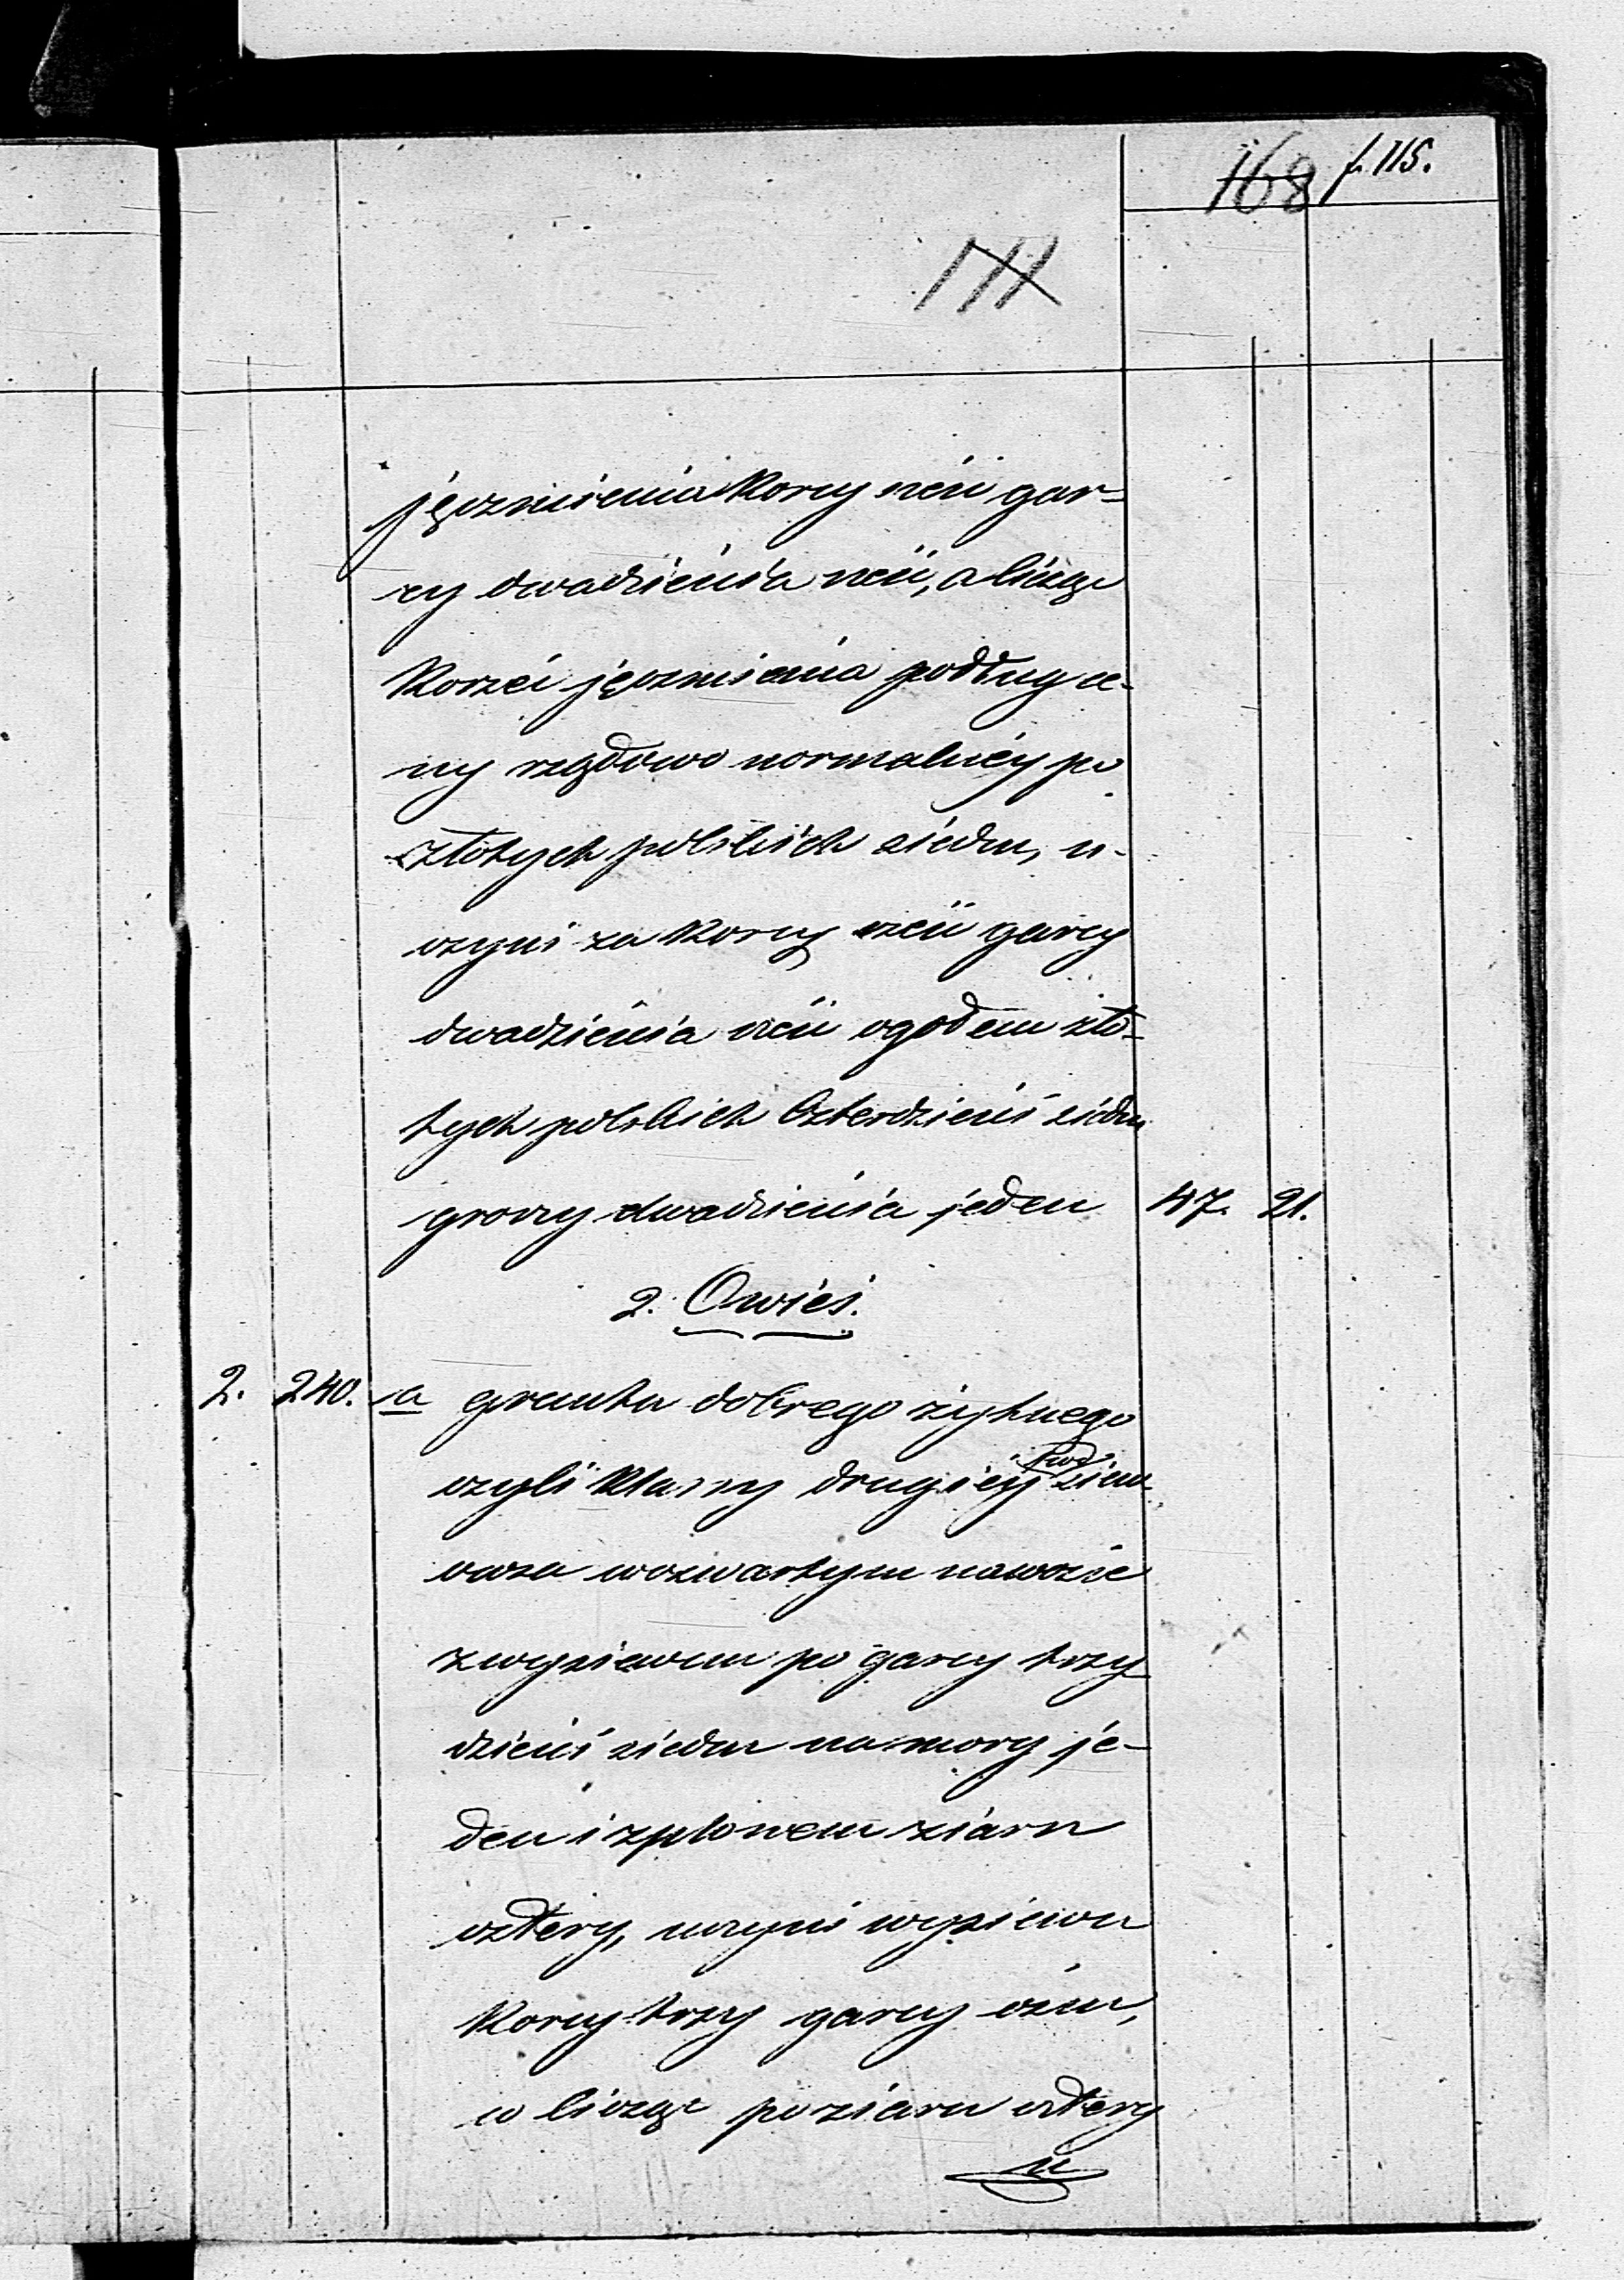 168 f. 115.
171
jęczmienia Korcy sześć gar-
cy dwadzieścia sześć, a licząc
Korzec jęczmienia podług ce-
ny rządowo normalnéy po
złotych polskich siedm, u-
czyni za Korcy sześć garcy
dwadzieścia sześć ogółem zło-
tych polskich Czterdzieści siedm
groszy dwadzieścia jeden 47. 21.
2. Owies.
2. 240. a gruntu dobrego żytnego
czyli Klassy drugiéy pod siew
owsa w czwartym nawozie
z wysiewem po garcy trzy
dzieści siedm na morg je-
den i z plonem ziarn
cztery, uczyni wysiewu
Korcy trzy garcy ośm,
co licząc po ziarn cztery